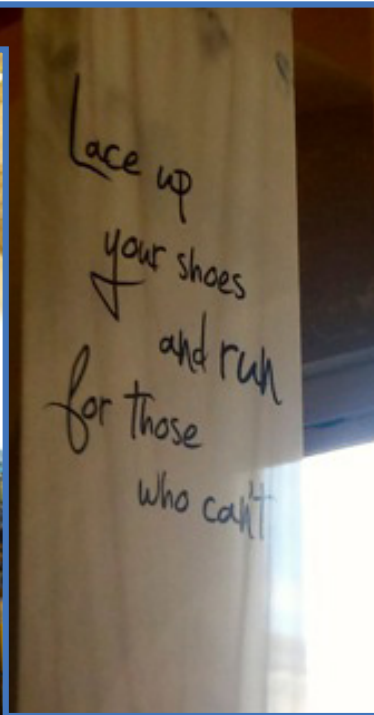 Lace up
your shoes
and run
for those
who can't